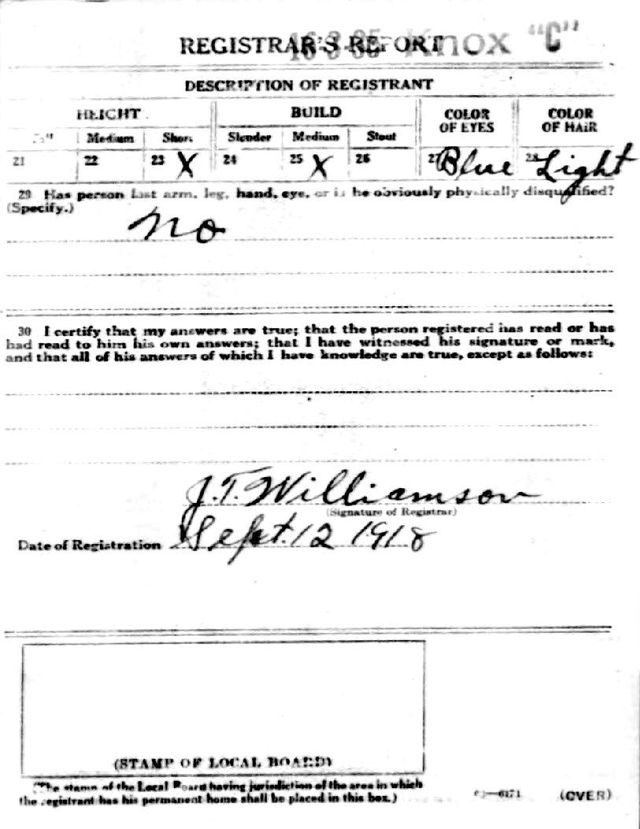 REGISTRAR'S REPORT
16-3-35 Knox "C"
DESCRIPTION OF REGISTRANT
HEIGHT BUILD COLOR OF EYES COLOR OF HAIR
Medium Short Slender Medium Stout
21 22 23 X 24 25 X 26 27 Blue 28 Light
29 Has person lost arm, leg, hand, eye, or is he obviously physically disqualified?
(Specify.)
No
30 I certify that my answers are true; that the person registered has read or has
had read to him his own answers; that I have witnessed his signature or mark,
and that all of his answers of which I have knowledge are true, except as follows:
J.T. Williamson
(Signature of Registrar)
Date of Registration Sept. 12 1918
(STAMP OF LOCAL BOARD)
(The stamp of the Local Board having jurisdiction of the area in which
the registrant has his permanent home shall be placed in this box.)
—6171 (OVER)